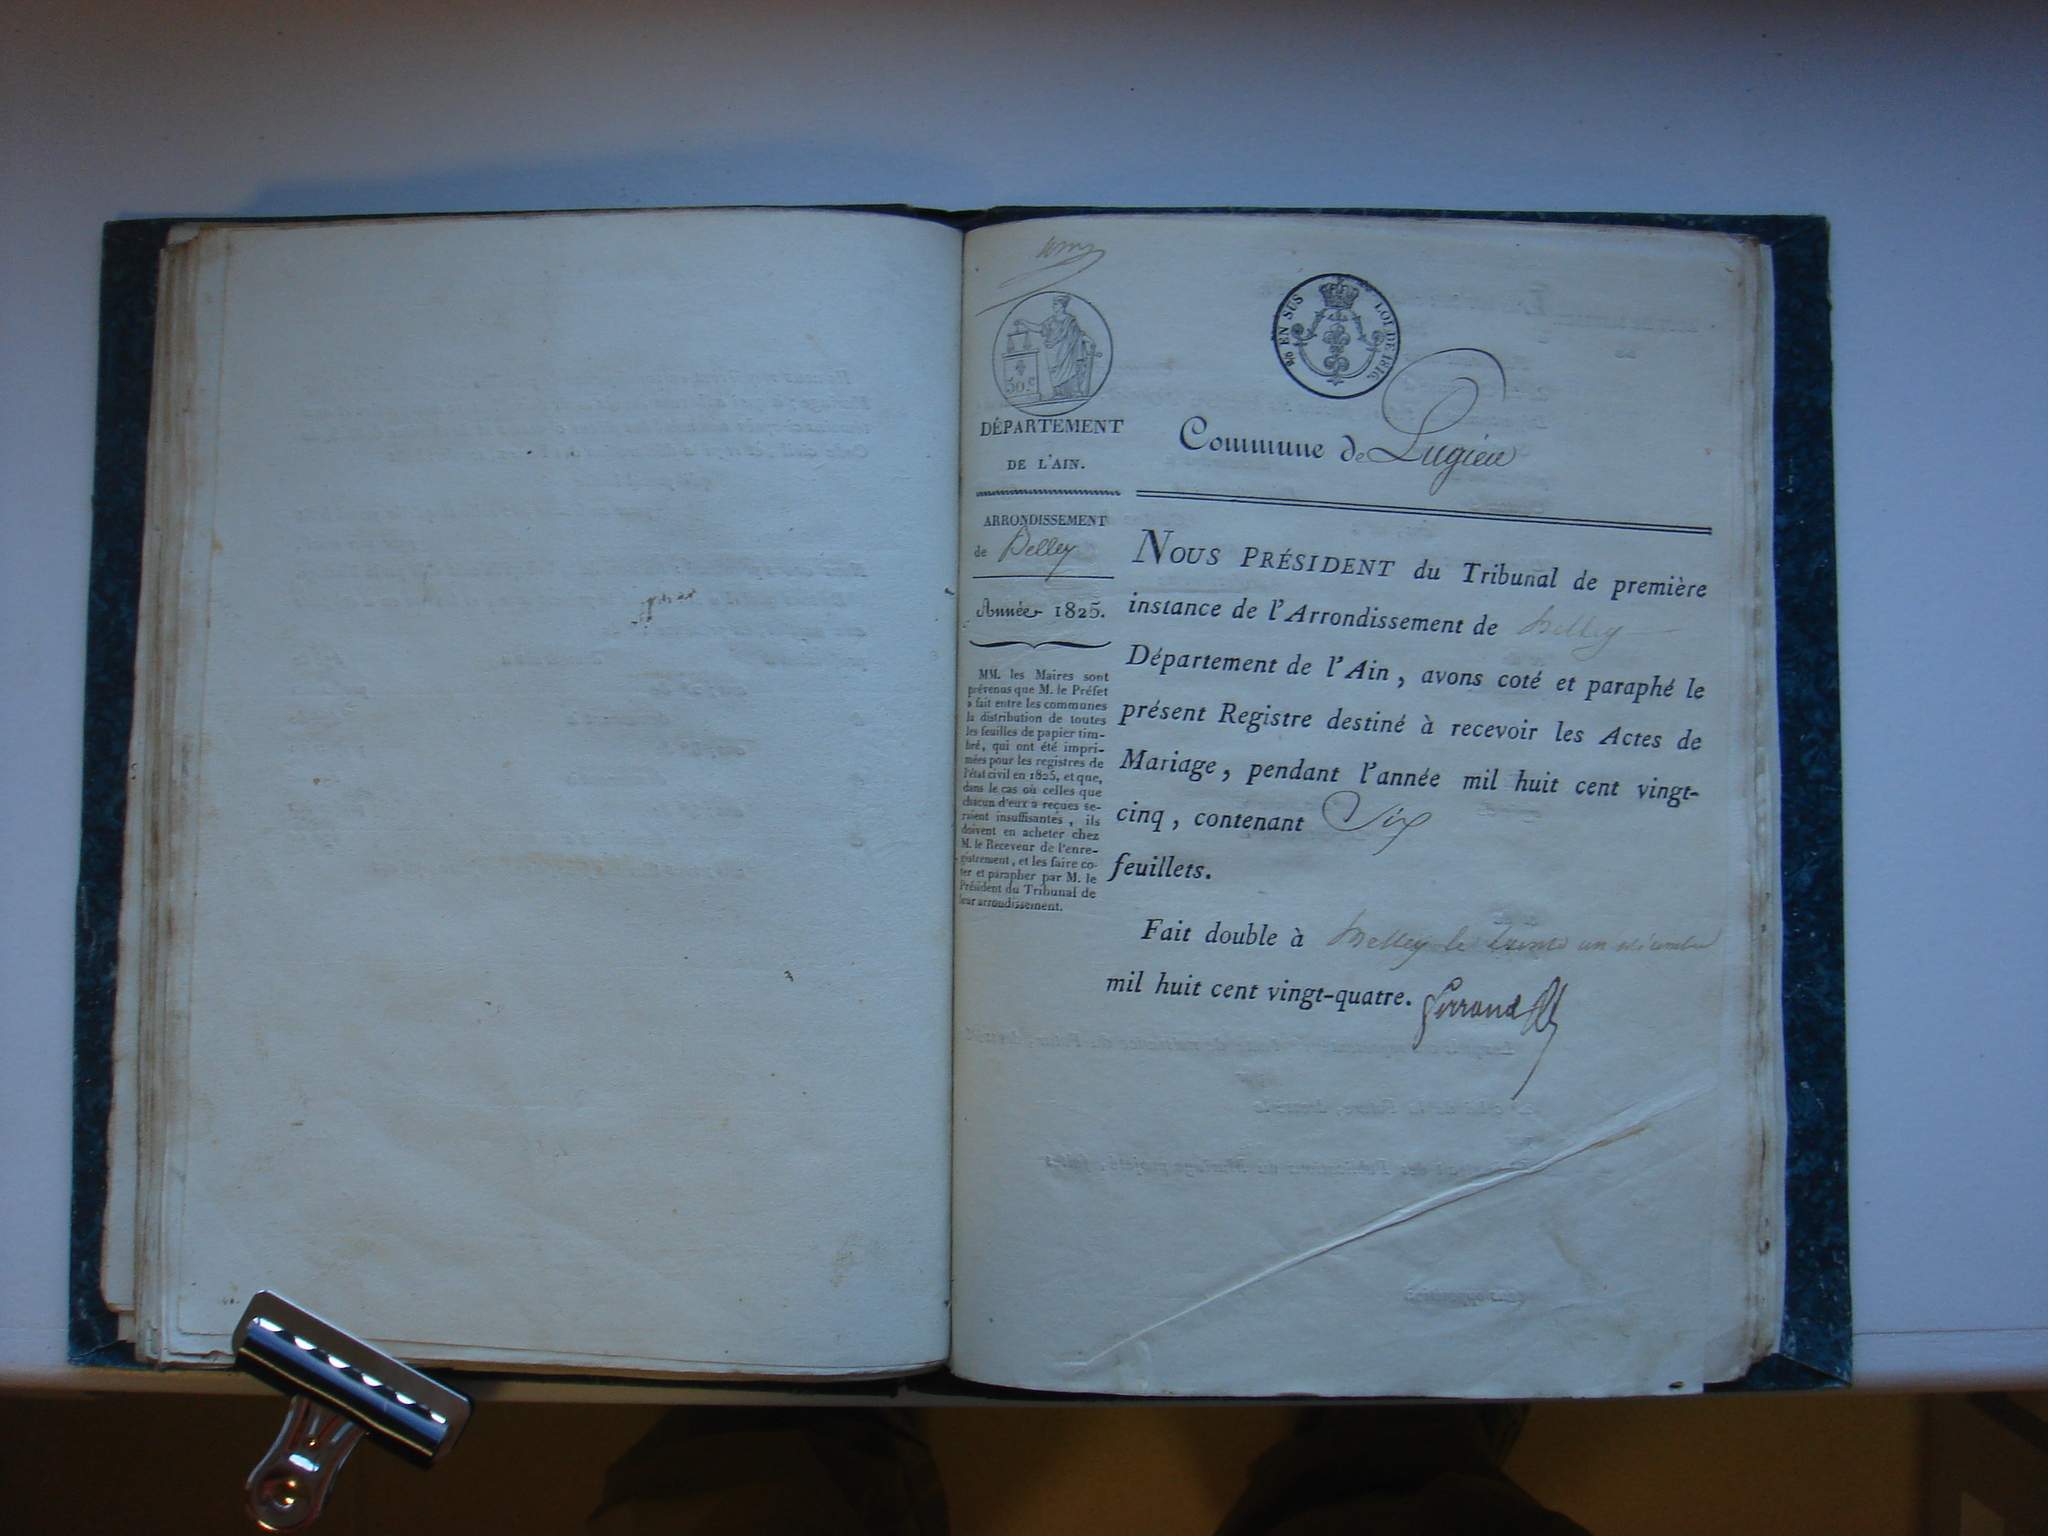 50.c
¼ EN SUS LOI DE 1816.
DÉPARTEMENT
DE L'AIN.
Commune de Lugieu
ARRONDISSEMENT
de Belley
Année 1825.
MM. les Maires sont
prévenus que M. le Préfet
a fait entre les communes
la distribution de toutes
les feuilles de papier tim-
bré, qui ont été impri-
mées pour les registres de
l'état civil en 1825, et que,
dans le cas où celles que
chacun d'eux a reçues se-
raient insuffisantes, ils
doivent en acheter chez
M. le Receveur de l'enre-
gistrement, et les faire co-
ter et parapher par M. le
Président du Tribunal de
leur arrondissement.
NOUS PRÉSIDENT du Tribunal de première
instance de l'Arrondissement de Belley
Département de l'Ain, avons coté et paraphé le
présent Registre destiné à recevoir les Actes de
Mariage, pendant l'année mil huit cent vingt-
cinq, contenant Six
feuillets.
Fait double à Belley le trente un décembre
mil huit cent vingt-quatre.